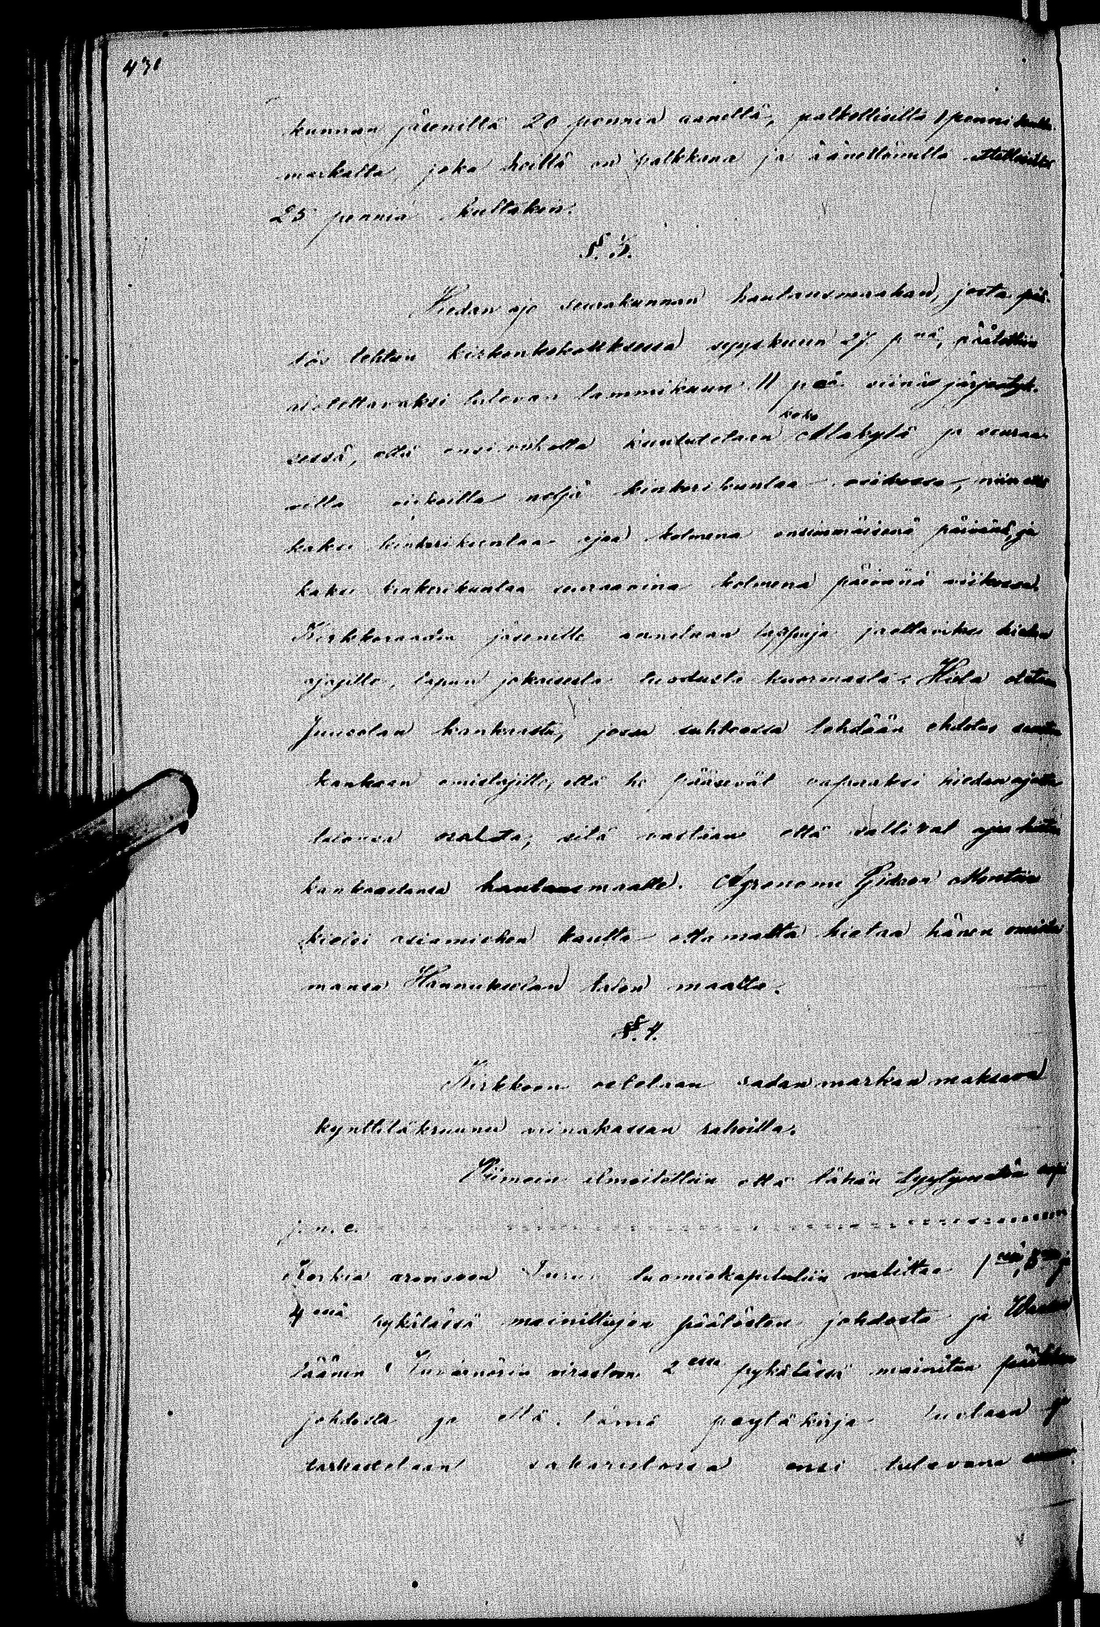 430
kunnan jäsenillä 20 penniä äänellä, palkollisilla 1 penni kulla
markalta, joka heillä on palkkana ja äänettömillä
25 penniä kultakin.
§. 3.
Hiedan ajo seurakunnan hautausmaahan, josta pää-
tös tehtiin kirkonkokouksessa syyskuun 27 p nä, päätettiin
aloitettavaksi tulevan tammikuun 11 p nä siinä järjestyk-
sessä, että ensi viikolla kuulutetaan koko Alakylä ja seuraa-
villa viikoilla neljä kinkerikuntaa viikossa, niin että
kaksi kinkerikuntaa ajaa kolmena ensimmäisenä päivänä, ja
kaksi kinkerikuntaa seuraavina kolmena päivänä viikossa.
Kirkkoraadin jäsenille annetaan lappuja jaettaviksi hiedan
ajajille, lapun jokaisesta tuodusta kuormasta. Hieta otetaan
Juusolan kankaasta, jossa suhteessa tehdään ehdotus
kankaan omistajille, että he pääsevät vapaaksi hiedan ajosta
talonsa osalta, sitä vastaan että sallivat ajaa hietaa
kankaastansa hautausmaalle. Agronomi Gideon
kielsi asiamiehen kautta ottamatta hietaa hänen omista-
mansa Hannukselan talon maalta.
§. 4.
Kirkkoon ostetaan sadan markan maksava
kynttiläkruunu viinakassan rahoilla.
Viimein ilmoitettiin että tähän tyytymätön
j. n. e.
Korkia arvoisaan Turun tuomiokapituliin valittaa 1 nen, 3 nen ja
4 nessä pykälässä mainittujen päätösten johdosta ja Waasan
Läänin Kuvernörin virastoon 2 essa pykälässä mainitun päätöksen
johdosta ja että tämä pöytäkirja luetaan ja
tarkastetaan sakaristossa ensi tulevana